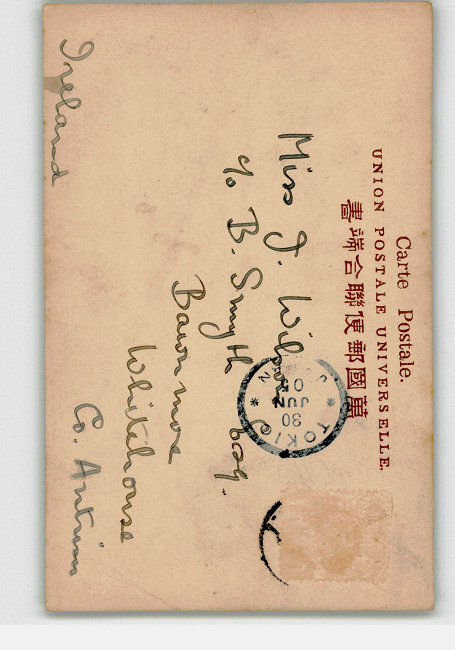 Carte Postale.
UNION POSTALE UNIVERSELLE.
萬國郵便聯合端書
TOKIO
30
JUN
05
Miss J. Wilson
c/o B. Smyth Esq.
Bawnmore
Whitehouse
Co. Antrim
Ireland